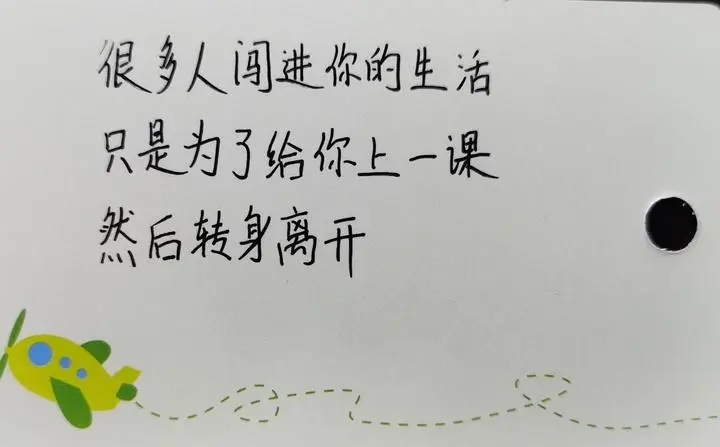 很多人闯进你的生活
只是为了给你上一课
然后转身离开